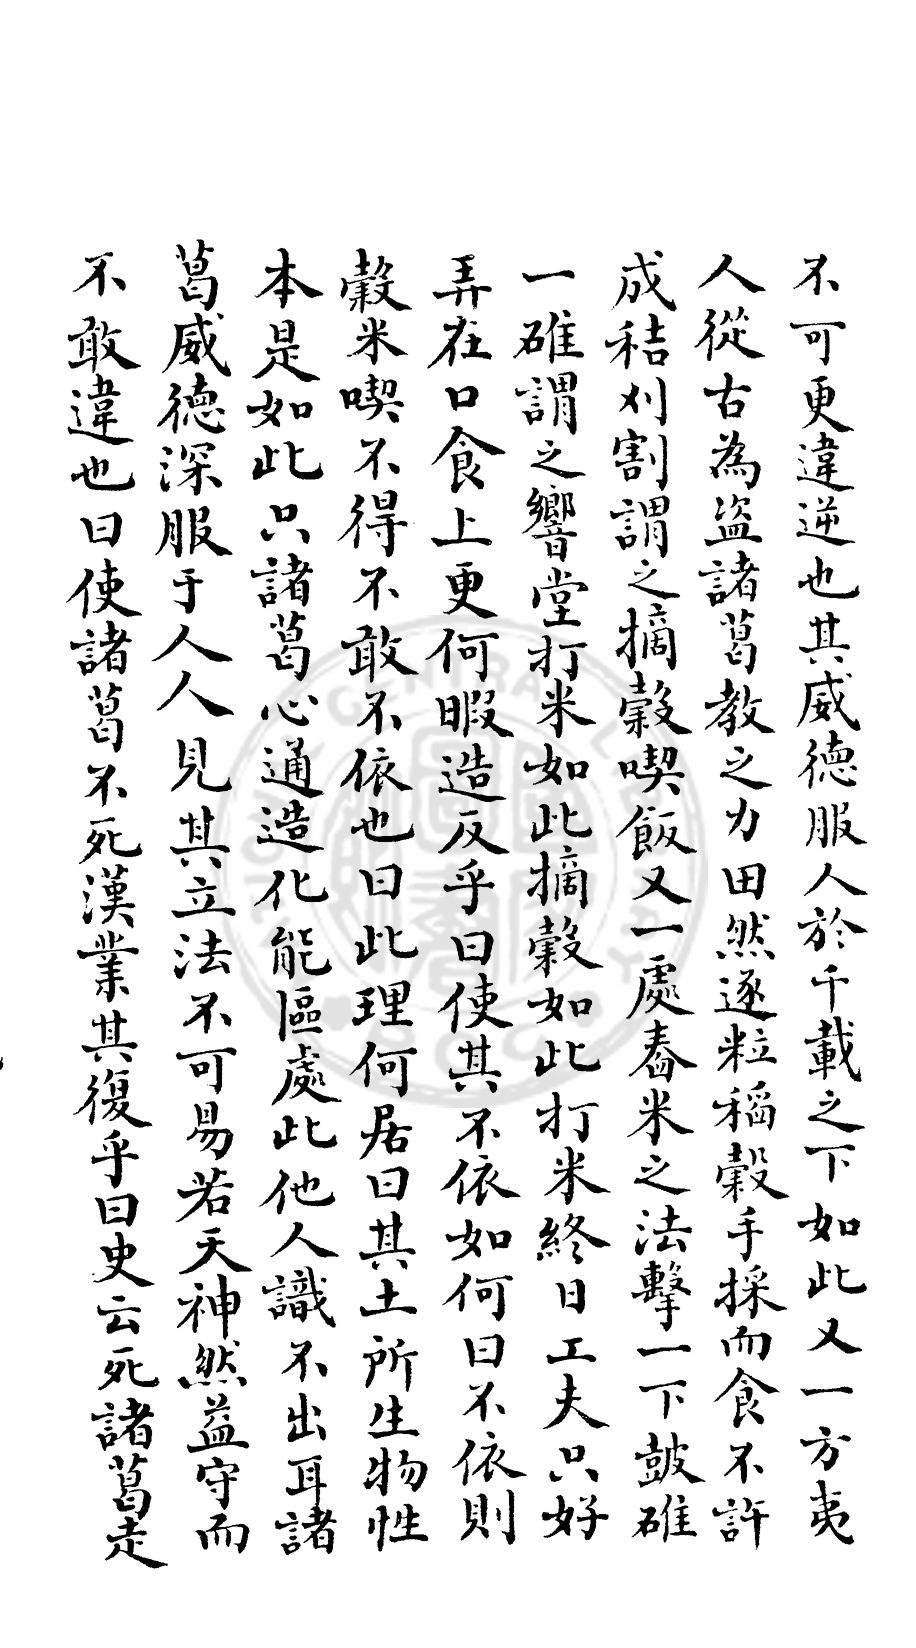 不可更違逆也其威德服人於千載之下如此又一方夷
人從古為盜諸葛教之力田然逐粒稻穀手採而食不許
成秸刈割謂之摘穀喫飯又一處舂米之法擊一下鼓碓
一碓謂之響堂打米如此摘穀如此打米終日工夫只好
弄在口食上更何暇造反乎曰使其不依如何曰不依則
穀米喫不得不敢不依也曰此理何居曰其土所生物性
本是如此只諸葛心通造化能區處此他人識不出耳諸
葛威德深服于人人見其立法不可易若天神然益守而
不敢違也曰使諸葛不死漢業其復乎曰史云死諸葛走